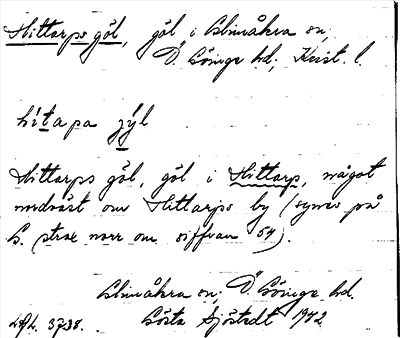 Hittarps göl, göl i Glimåkra sn,
Ö. Göinge hd; Krist. l.
hítapa jýl
Hittarps göl, göl i Hittarp, något
nordväst om Hittarps by (synes på
G. strax norr om siffran 54).
Glimåkra sn; Ö. Göinge hd.
Gösta Sjöstedt 1942
3738.